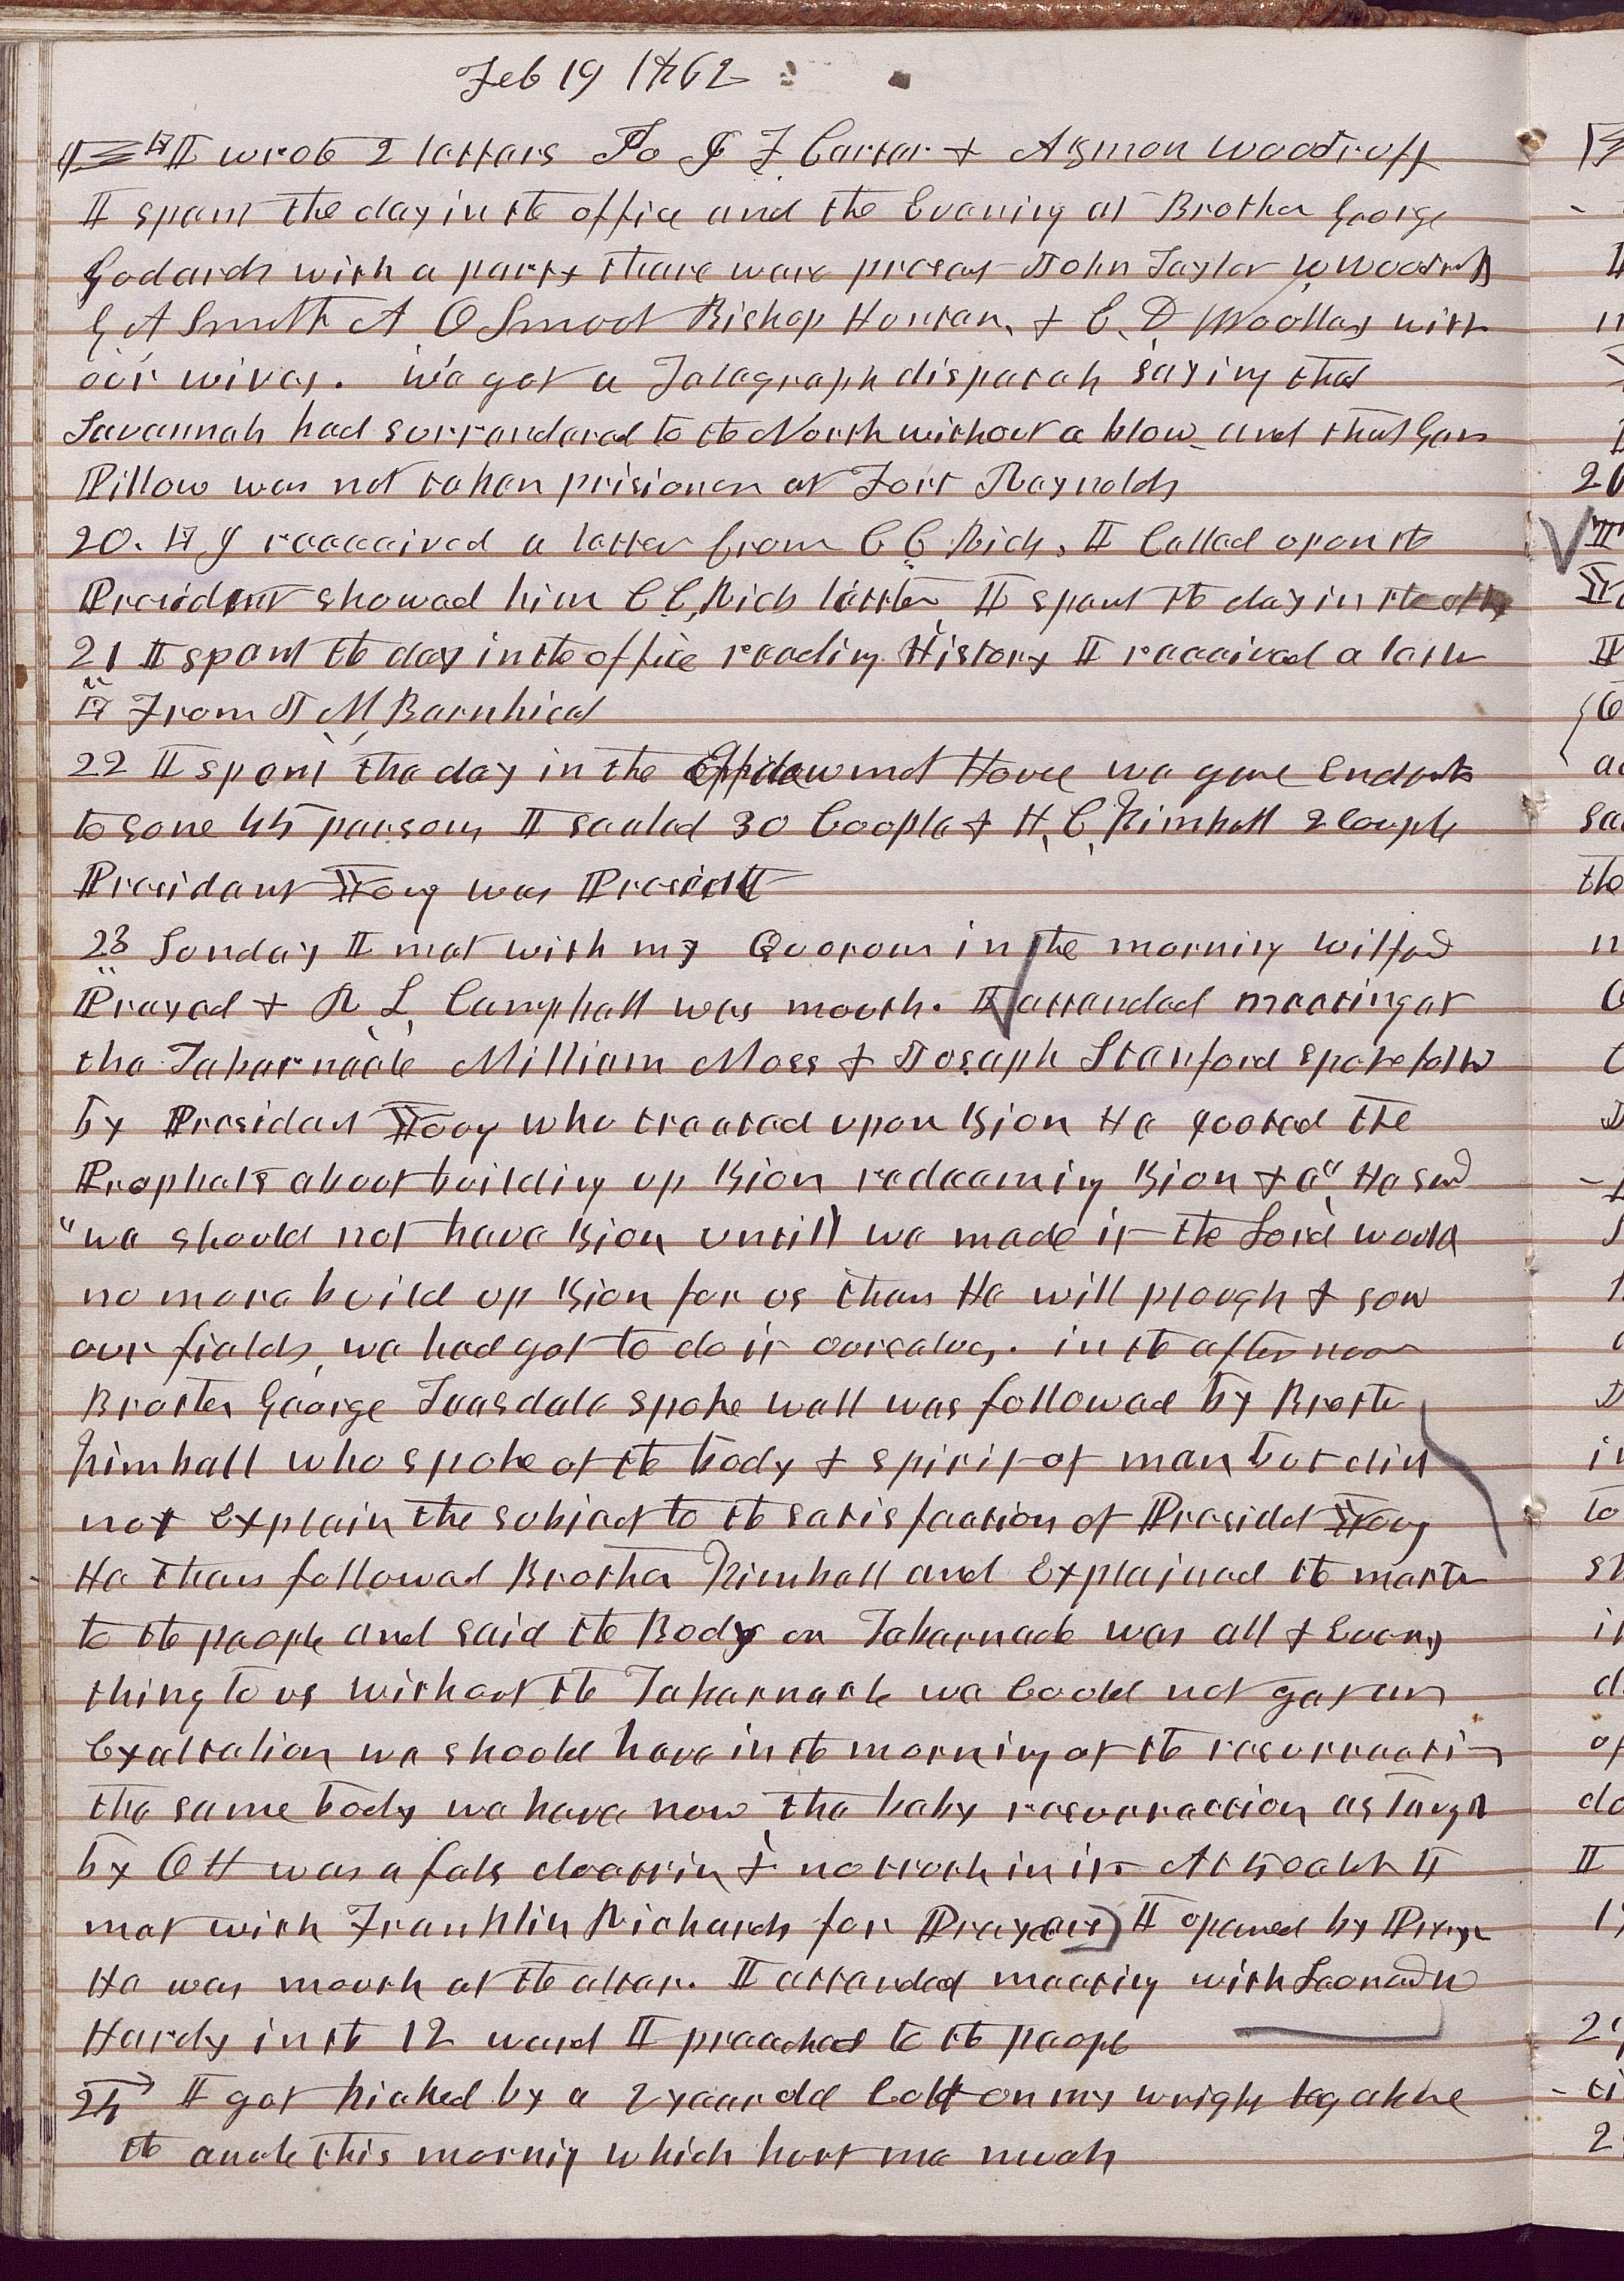 Feb 19 1862
I wrote 2 letters To I F Carter & Azmon Woodruff
I spent the day in the office and the Evening at Brother George
Godards with a party there were present John Taylor W Woodruff
G A Smith A O Smoot Bishop Hunter, & E. D Woolley with
our wives. We got a Telegraph dispatch saying that
Savannah had surrendered to the North without a blow and that Gen
Pillow was not taken prisioner at Fort Raynolds
20. I receceived a letter from C C Rich, I Called upon the
President showed him C C Rich letter I spent the day in the office
21 I spent the day in the office reading History I received a letter
From J M Barnhisel
22 I spent the day in the Endowment House we gave Endowments
to some 45 persons I sealed 30 Couple & H, C, Kimball 2 Couple
President Young was Present
23 Sunday I met with my Quorum in the morning Wilford
Prayed & R L Campbell was mouth. I attended meeting at
the Tabernacle William Moss & Joseph Stanford spoke follwd
by President Young who treated upon Zion He quoted the
Prophets about building up Zion redeeming Zion &c" He said
"we should not have Zion untill we made it the Lord would
no more build up Zion for us than He will plough & sow
our fields, we had got to do it ourselves. in the afternoon
Brother George Teasdale spoke well was followed by Brother
Kimball who spoke of the body & spirit of man but did
not Explain the subject to the satisfaction of Presidet Young
He then followed Brother Kimball and Explained the matter
to the people and said the Body or Tabernacle was all & Every
thing to us without the Tabernacle we Could not get an
Exaltation we should have in the morning of the resurrection
the same body we have now, the baby resurrection as taught
by OH was a fals doctrin & no truth in it At 5 oclok I
met with Franklin Richards for Prayer I opened by Prayer
He was mouth at the altar. I attended meeting with Leonard W
Hardy in the 12 ward I preached to the people
24 I got kicked by a 2 year old Colt on my wright leg above
the ancle this mornig which hurt me much